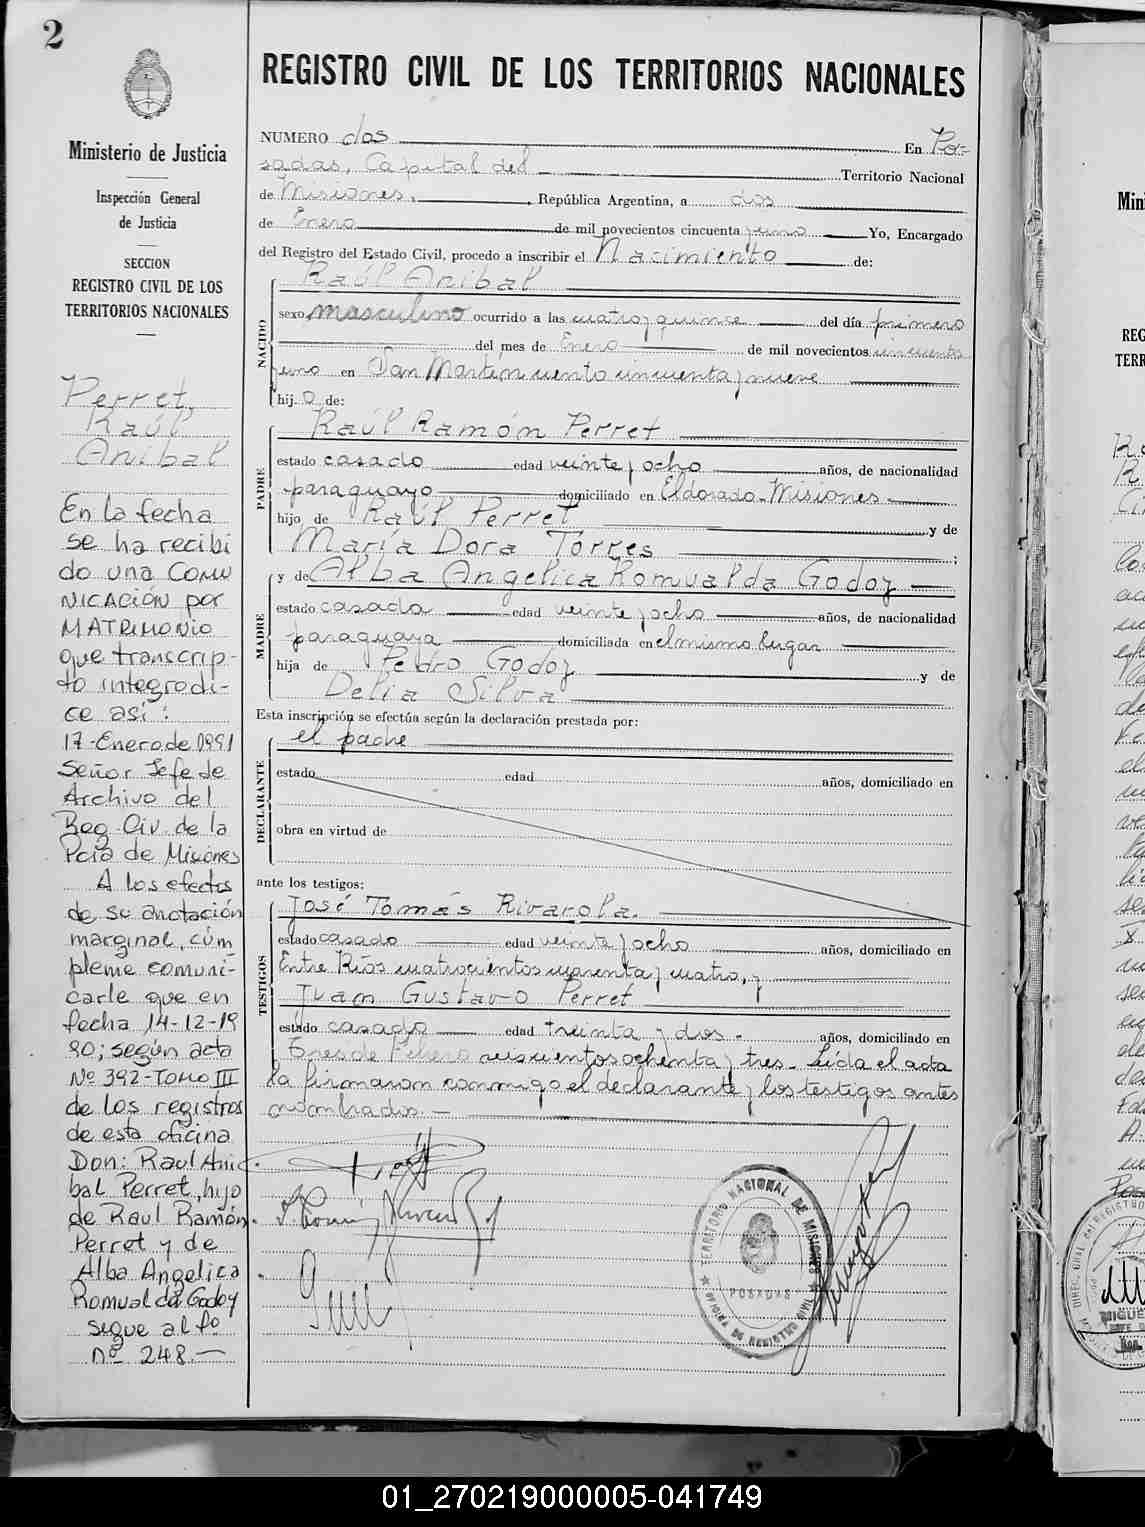 2
REGISTRO CIVIL DE LOS TERRITORIOS NACIONALES
Ministerio de Justicia
Inspección General
de Justicia
SECCION
REGISTRO CIVIL DE LOS
TERRITORIOS NACIONALES
Perret,
Raúl
Anibal
En la fecha
se ha recibi
do una COMU
NICACIÓN por
MATRIMONIO
que transcrip-
to integro di-
ce así:
17-Enero de 1991
Señor Jefe de
Archivo del
Reg. Civ. de la
Pcia de Misiones
A los efectos
de su anotación
marginal, cúm
pleme comuni-
carle que en
fecha 14-12-19
90; según acta
Nº 392-TOMO III
de los registros
de esta oficina
Don: Raul Ani
bal Perret, hijo
de Raul Ramón
Perret y de
Alba Angelica
Romualda Godoy
sigue al fº
nº 248.—
NUMERO dos En Po-
sadas, Capital del Territorio Nacional
de Misiones, República Argentina, a dos
de Enero de mil novecientos cincuenta y uno Yo, Encargado
del Registro del Estado Civil, procedo a inscribir el Nacimiento de:
Raúl Anibal
NACIDO
sexo masculino ocurrido a las cuatro y quince del día primero
del mes de Enero de mil novecientos cincuenta
y uno en San Martín ciento cincuenta y nueve
hijo de:
Raúl Ramón Perret
PADRE
estado casado edad veinte y ocho años, de nacionalidad
paraguayo domiciliado en Eldorado-Misiones-
hijo de Raúl Perret y de
María Dora Torres ;
y de Alba Angelica Romualda Godoy
MADRE
estado casada edad veinte y ocho años, de nacionalidad
paraguaya domiciliada en el mismo lugar
hija de Pedro Godoy y de
Delia Silva
Esta inscripción se efectúa según la declaración prestada por:
el padre
DECLARANTE
estado edad años, domiciliado en
obra en virtud de
ante los testigos:
José Tomás Rivarola.
TESTIGOS
estado casado edad veinte y ocho años, domiciliado en
Entre Ríos cuatrocientos cuarenta y cuatro, y
Juan Gustavo Perret
estado casado edad treinta y dos. años, domiciliado en
Tres de Febrero ochenta y tres. Leída el acta
la firmaron conmigo el declarante y los testigos antes
nombrados.—
TERRITORIO NACIONAL DE MISIONES
POSADAS
OFICINA DE REGISTRO CIVIL
Min
REG
TERR
01_270219000005-041749